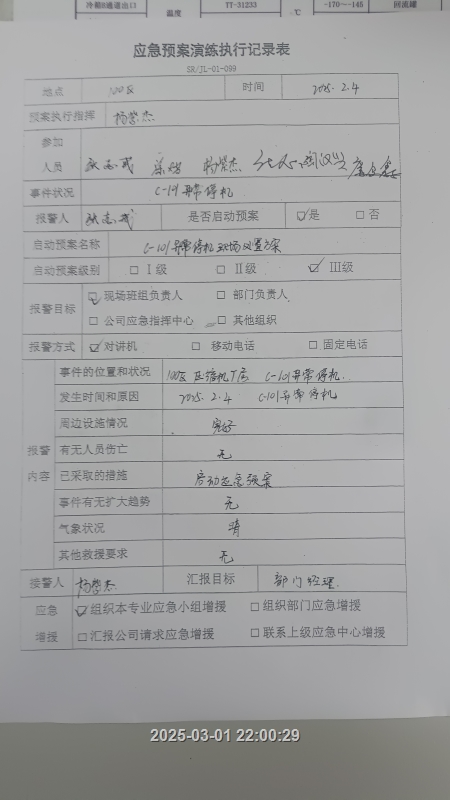 冷箱B通道出口 温度 TT-31233 ℃ -170~-145 回流罐
应急预案演练执行记录表
SR/JL-01-099
地点 100区 时间 2025.2.4
预案执行指挥 杨紫杰
参加
人员 杨紫杰
事件状况 C-101异常停机
报警人 是否启动预案 ☑是 □否
启动预案名称 C-101异常停机现场处置方案
启动预案级别 □Ⅰ级 □Ⅱ级 ☑Ⅲ级
报警目标 ☑现场班组负责人 □部门负责人
□公司应急指挥中心 □其他组织
报警方式 ☑对讲机 □移动电话 □固定电话
报警内容
事件的位置和状况 100区压缩机厂房 C-101异常停机.
发生时间和原因 2025.2.4 C-101异常停机
周边设施情况 完好
有无人员伤亡 无
已采取的措施 启动应急预案
事件有无扩大趋势 无
气象状况 晴
其他救援要求 无
接警人 杨紫杰 汇报目标 部门经理
应急增援 ☑组织本专业应急小组增援 □组织部门应急增援
□汇报公司请求应急增援 □联系上级应急中心增援
2025-03-01 22:00:29